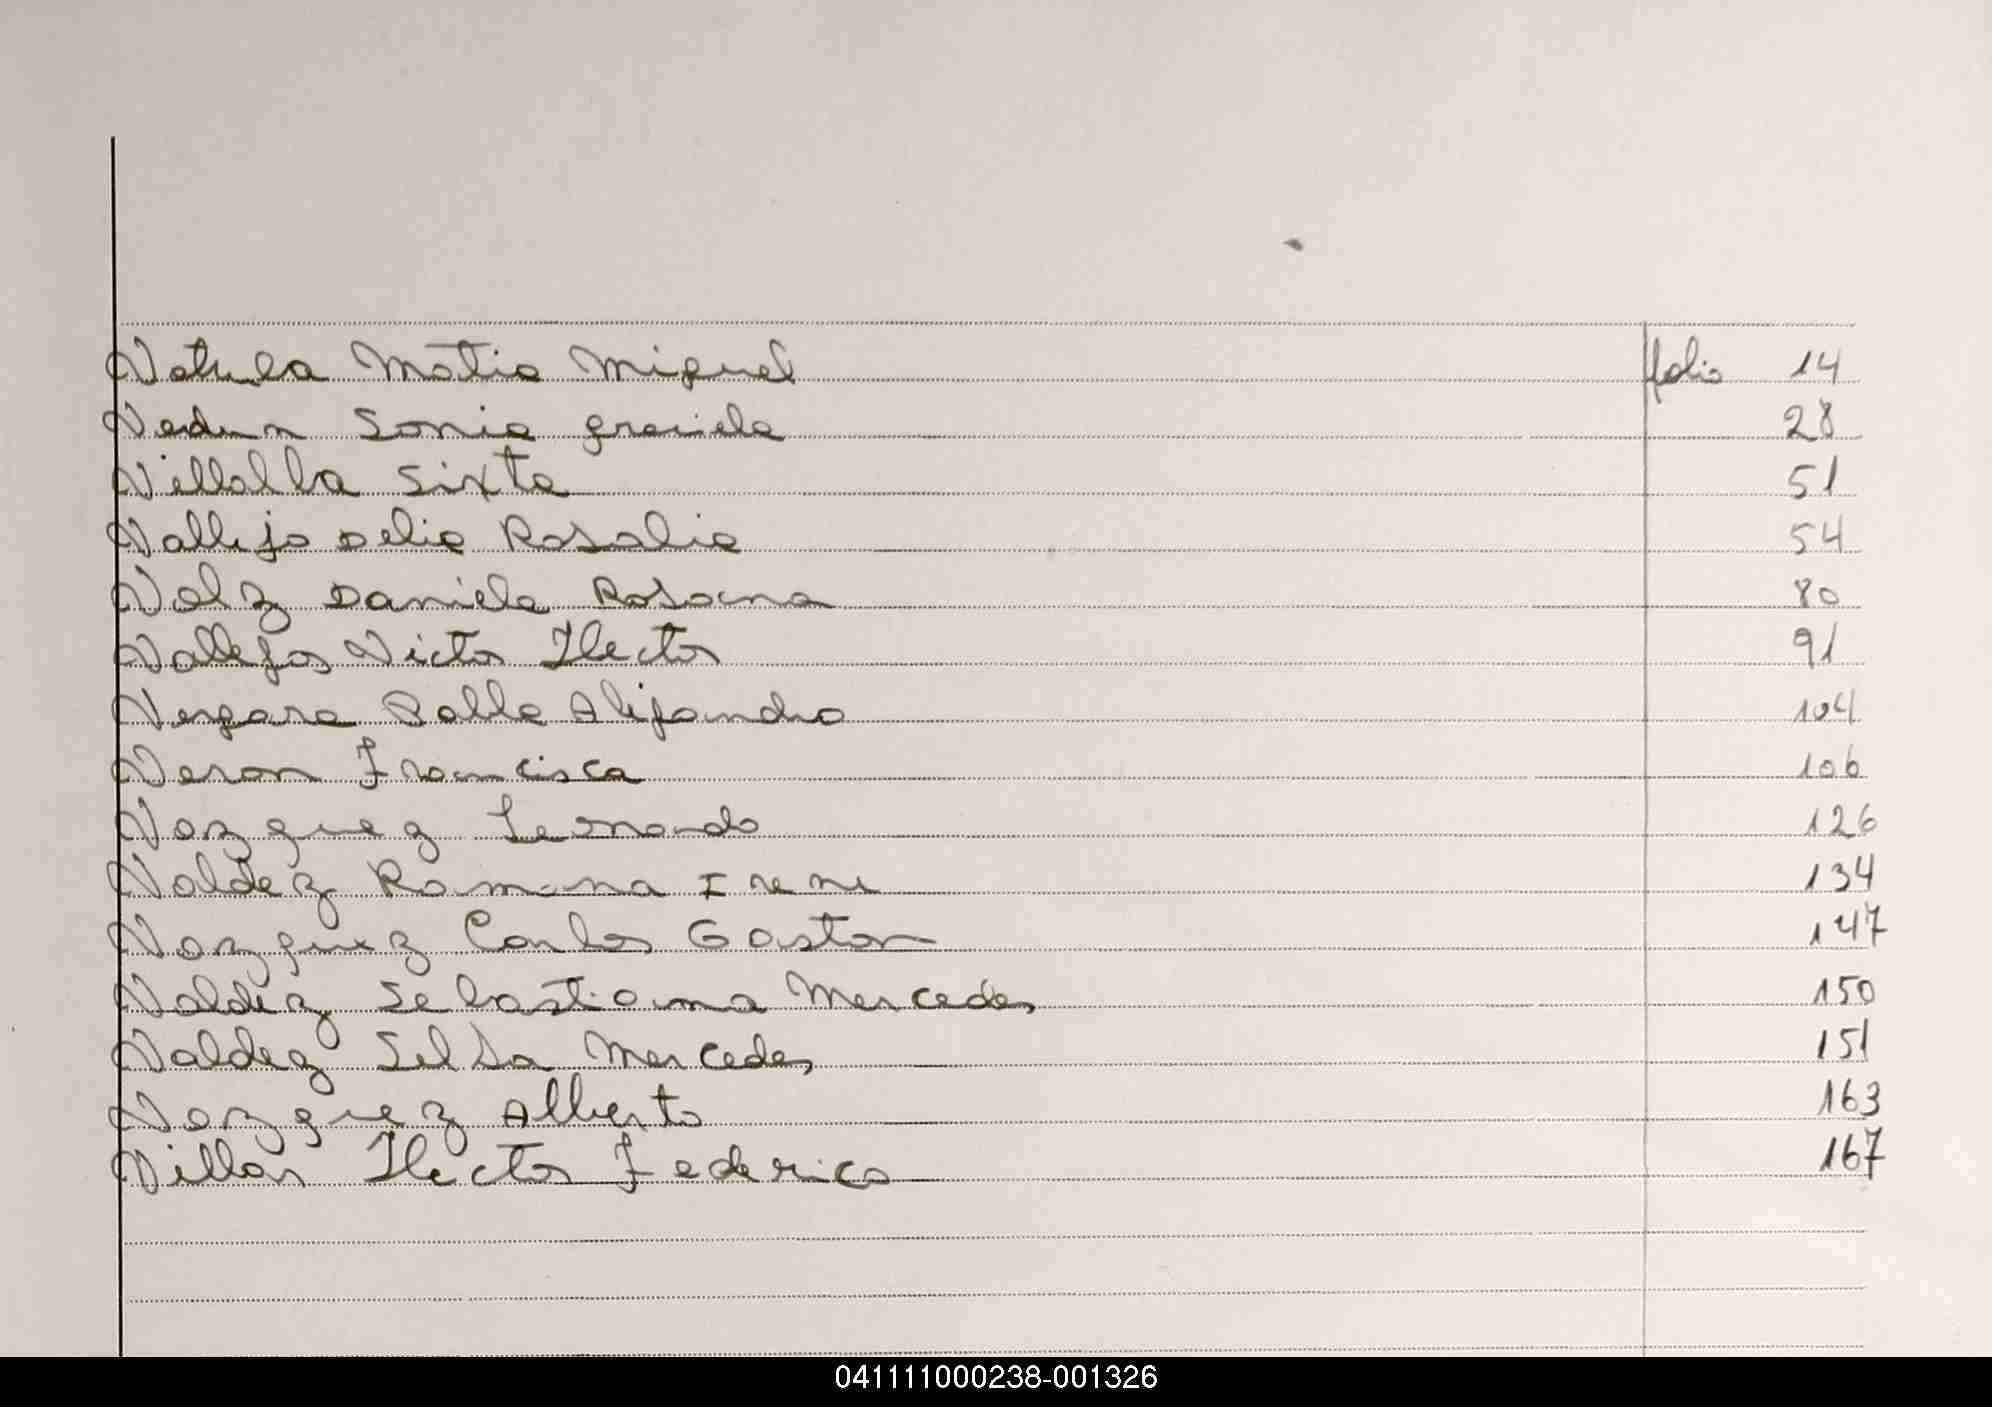 Vatula Matia Miguel folio 14
Verdun Sonia graciela 28
Villalba Sixta 51
Vallejo Delia Rosalia 54
Volz Daniela Rosana 80
Vallejos Victor Hector 91
Vergara Pablo Alejandro 104
Veron Francisca 106
Vazquez Leonardo 126
Valdez Romina Irene 134
Vazquez Carlos Gaston 147
Valdez Sebastiana Mercedes 150
Valdez Selsa Mercedes 151
Vazquez Alberto 163
Villar Hector Federico 167
041111000238-001326